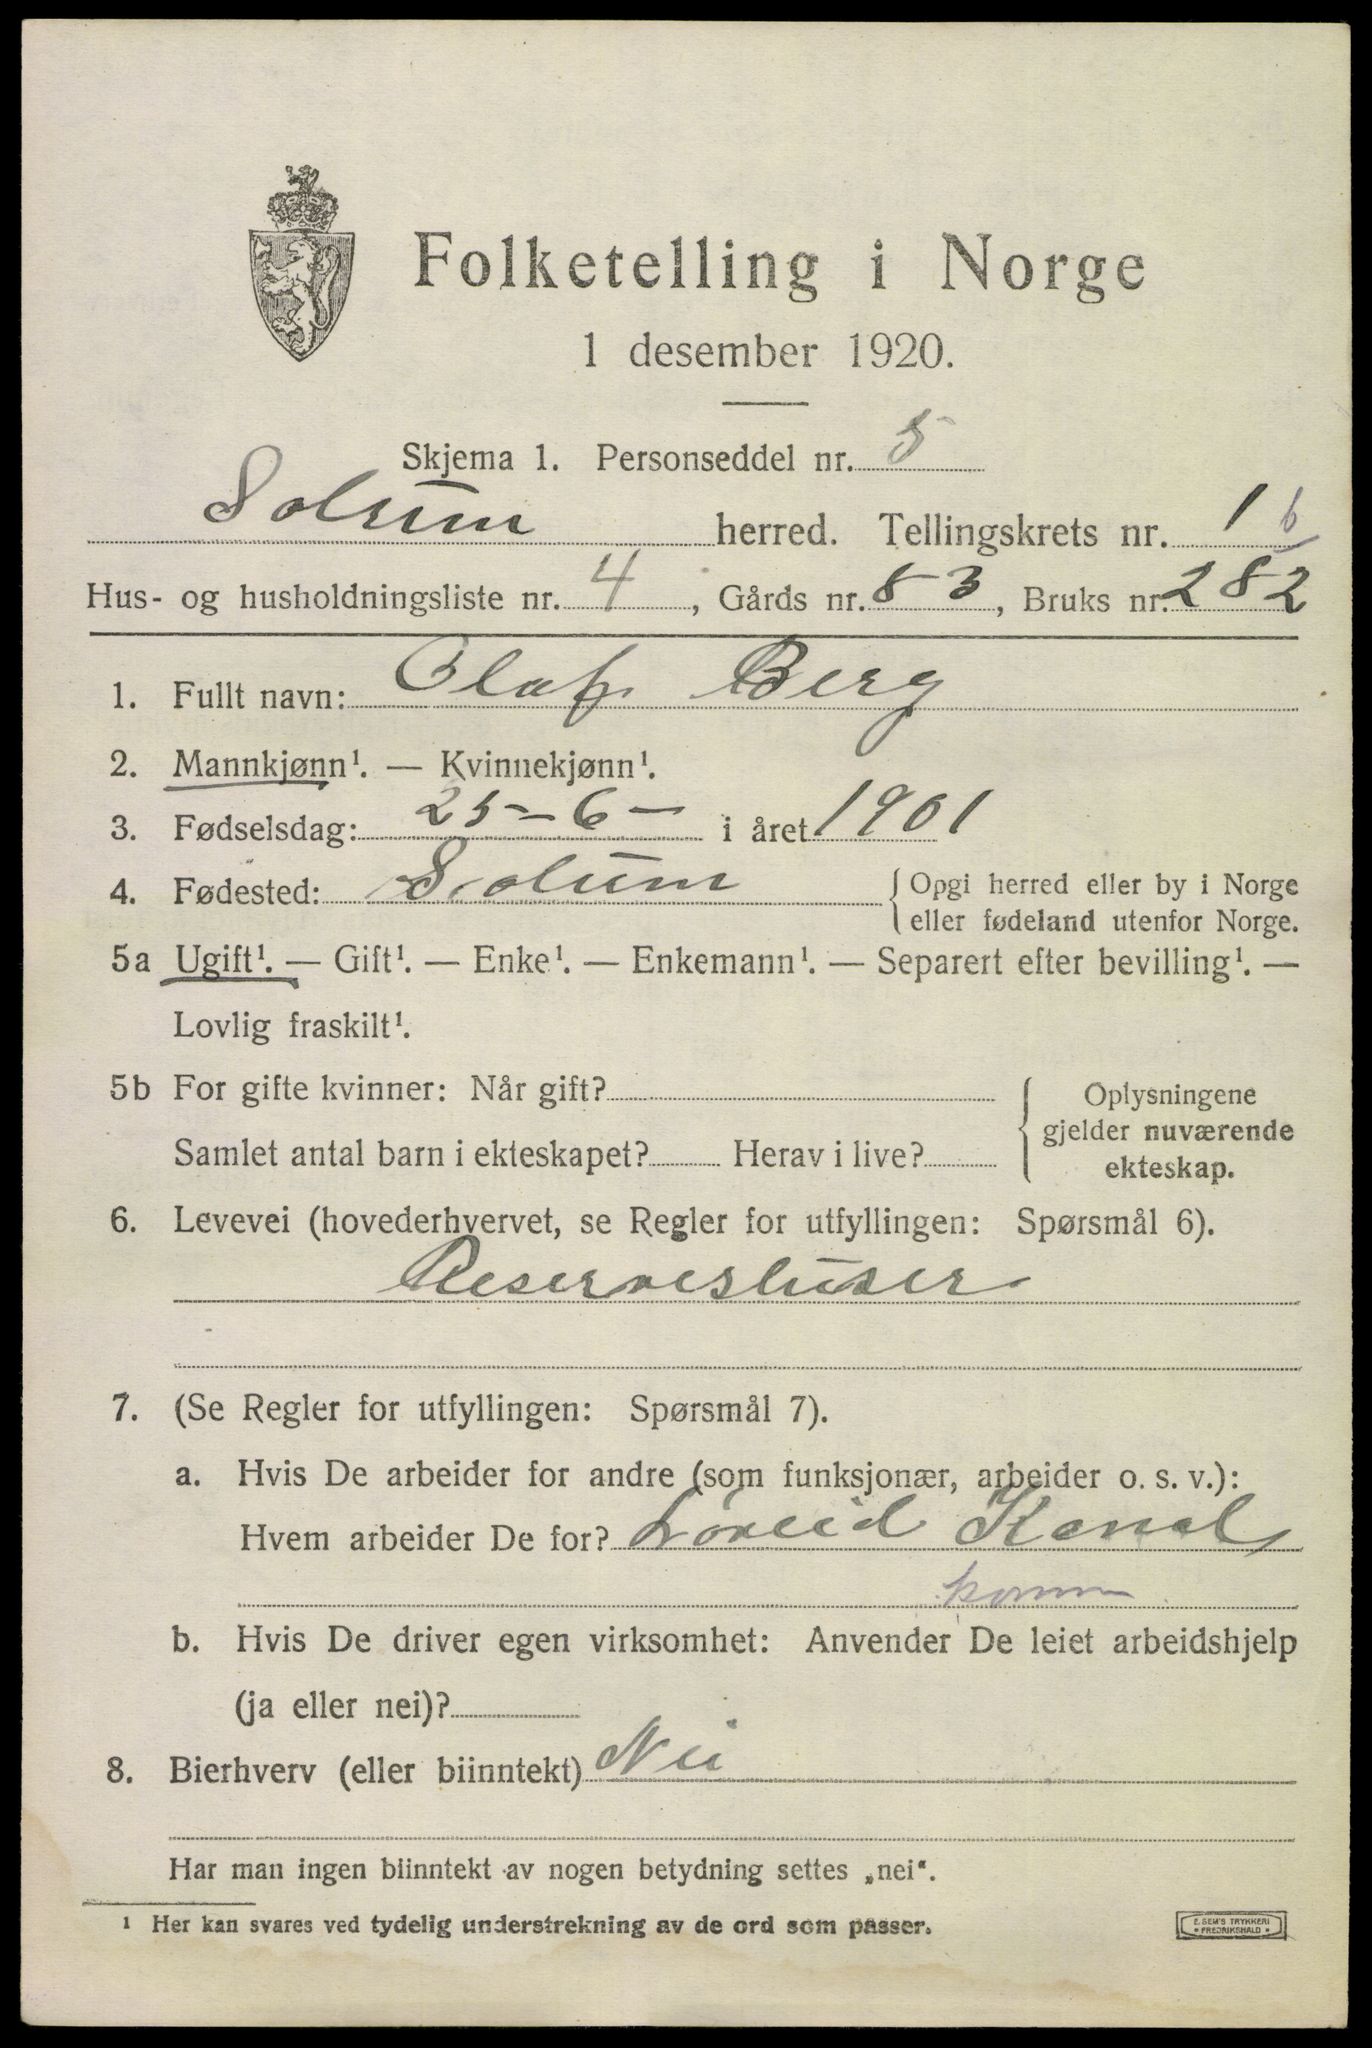 Folketelling i Norge
1 desember 1920.
Skjema 1. Personseddel nr. 5
Solum herred. Tellingskrets nr. 1 b
Hus- og husholdningsliste nr. 4, Gårds nr. 83, Bruks nr. 282
1. Fullt navn: Olaf Berg
2. Mannkjønn¹. — Kvinnekjønn¹.
3. Fødselsdag: 25-6- i året 1901
4. Fødested: Solum { Opgi herred eller by i Norge
eller fødeland utenfor Norge.
5a Ugift¹. — Gift¹. — Enke¹. — Enkemann¹. — Separert efter bevilling¹. —
Lovlig fraskilt¹.
5b For gifte kvinner: Når gift? { Oplysningene
gjelder nuværende
Samlet antal barn i ekteskapet? Herav i live?
ekteskap.
6. Levevei (hovederhvervet, se Regler for utfyllingen: Spørsmål 6).
Reservesluser
7. (Se Regler for utfyllingen: Spørsmål 7).
a. Hvis De arbeider for andre (som funksjonær, arbeider o. s. v.):
Hvem arbeider De for? Løveid Kanal
b. Hvis De driver egen virksomhet: Anvender De leiet arbeidshjelp
(ja eller nei)?
8. Bierhverv (eller biinntekt) Nei
Har man ingen biinntekt av nogen betydning settes „nei“.
¹ Her kan svares ved tydelig understrekning av de ord som passer.
E. SEM'S TRYKKERI
FREDRIKSHALD